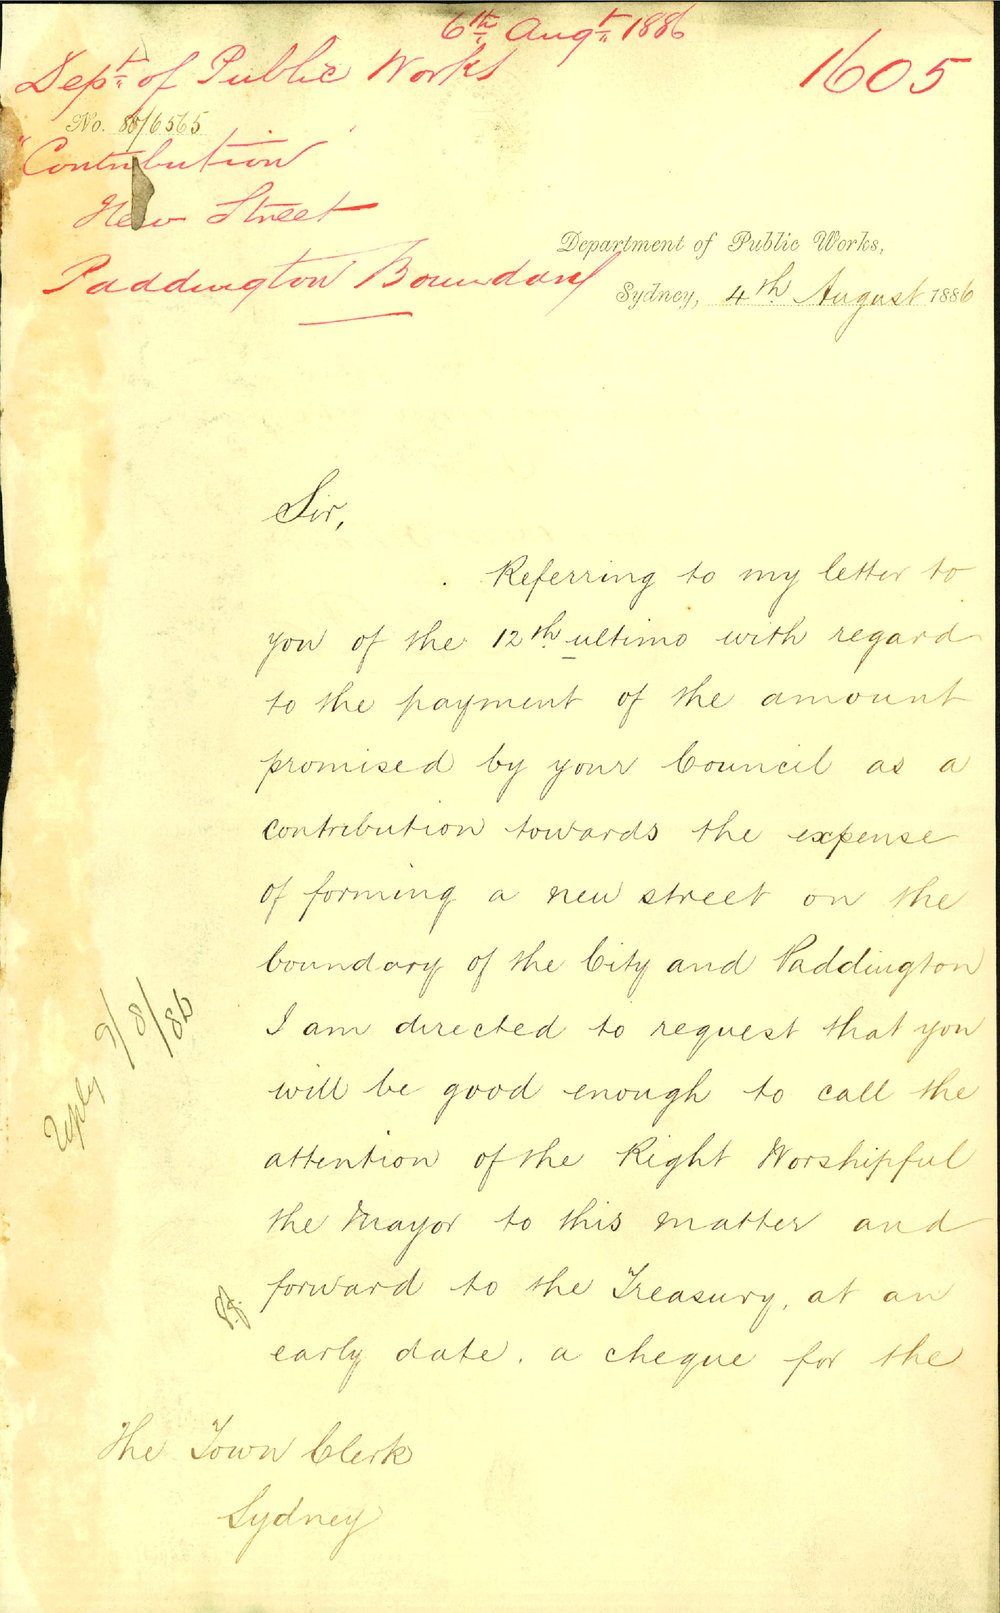 6th Augt 1886
Dept of Public Works
1605
No. 86/6565
"Contribution"
New Street
Paddington Boundary
Department of Public Works,
Sydney, 4th August 1886
Sir,
Referring to my letter to
you of the 12th ultimo with regard
to the payment of the amount
promised by your Council as a
contribution towards the expense
of forming a new street on the
boundary of the City and Paddington
I am directed to request that you
will be good enough to call the
attention of the Right Worshipful
the Mayor to this matter and
forward to the Treasury, at an
early date, a cheque for the
reply 9/8/86
The Town Clerk
Sydney